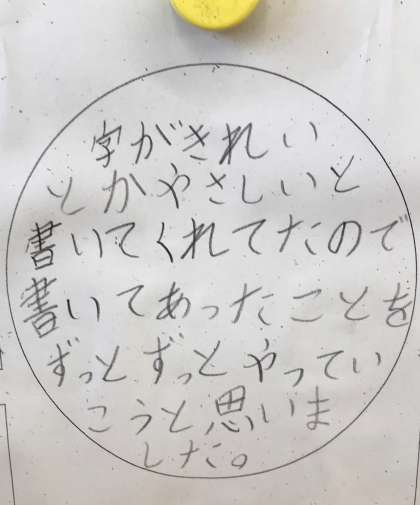 字がきれい
とかやさしいと
書いてくれてたので
書いてあったことを
ずっとずっとやってい
こうと思いま
した。